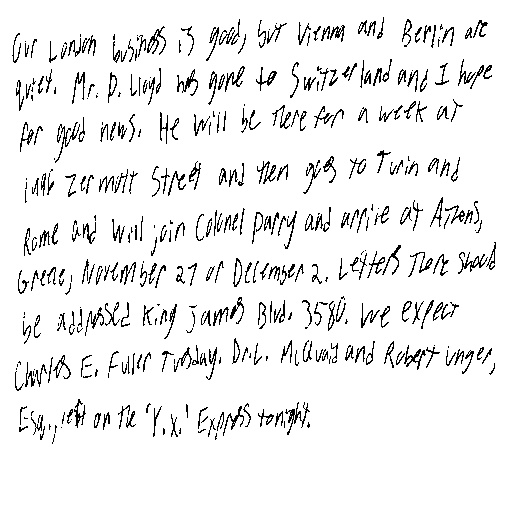 Our London business is good, but Vienna and Berlin are
quiet. Mr. D. Lloyd has gone to Switzerland and I hope
for good news. He will be there for a week at
1496 Zermott Street and then goes to Turin and
Rome and will join Colonel Parry and arrive at Athens,
Greece, November 27 or December 2. Letters there should
be addressed King James Blvd. 3580. We expect
Charles E. Fuller Tuesday. Dr. L. McQuaid and Robert Unger,
Esq., left on the 'Y.X.' Express tonight.